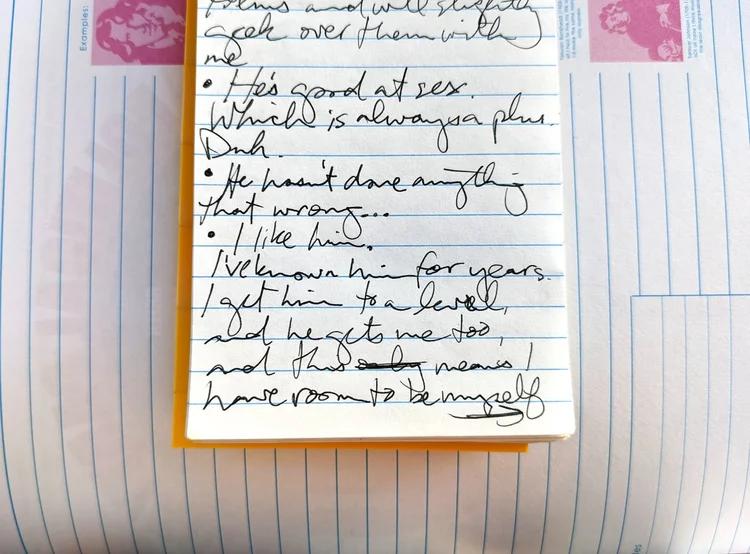 Poems and will slightly
geek over them with
me
• He's good at sex.
Which is always a plus.
Duh.
• He hasn't done anything
that wrong...
• I like him.
I've known him for years.
I get him to a level,
and he gets me too,
and this means I
have room to be myself
Examples: